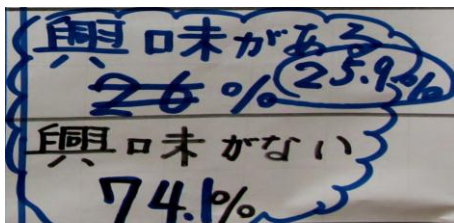 興味がある
26% 25.9%
興味がない
74.1%